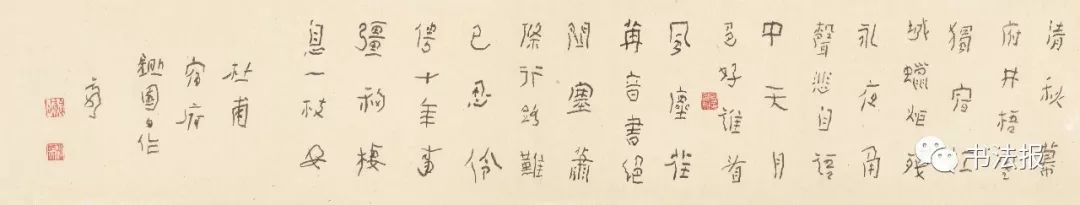 清秋幕
府井梧寒
獨宿江
城蠟炬殘
永夜角
聲悲自語
中天月
色好誰看
風塵荏
苒音書絕
關塞蕭
條行路難
已忍伶
俜十年事
彊移棲
息一枝安
杜甫
宿府
书法报